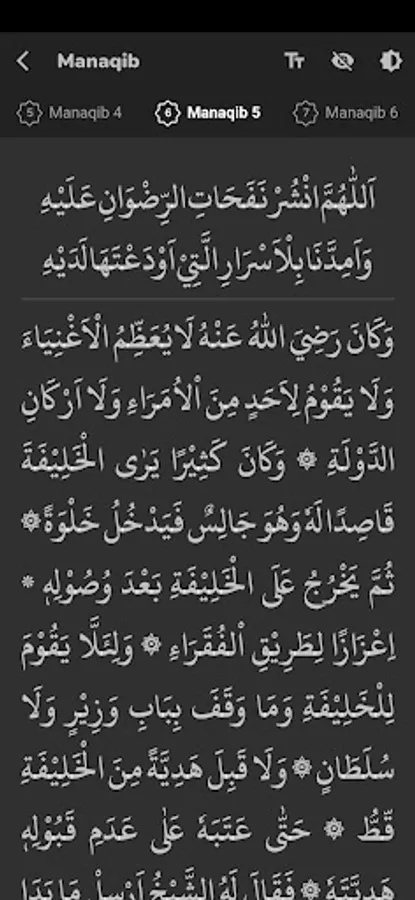 Manaqib
5 Manaqib 4 6 Manaqib 5 7 Manaqib 6
اَللّٰهُمَّ انْشُرْ نَفَحَاتِ الرِّضْوَانِ عَلَيْهِ
وَاَمِدَّنَا بِلْاَسْرَارِ الَّتِيْ اَوْدَعْتَهَا لَدَيْهِ
وَكَانَ رَضِيَ اللهُ عَنْهُ لَا يُعَظِّمُ الْاَغْنِيَاءَ
وَلَا يَقُوْمُ لِاَحَدٍ مِنَ الْاُمَرَاءِ وَلَا اَرْكَانِ
الدَّوْلَةِ ۞ وَكَانَ كَثِيْرًا يَرٰى الْخَلِيْفَةَ
قَاصِدًا لَهٗ وَهُوَ جَالِسٌ فَيَدْخُلُ خَلْوَةً ۞
ثُمَّ يَخْرُجُ عَلَى الْخَلِيْفَةِ بَعْدَ وُصُوْلِهٖ *
اِعْزَازًا لِطَرِيْقِ الْفُقَرَاءِ ۞ وَلِئَلَّا يَقُوْمَ
لِلْخَلِيْفَةِ وَمَا وَقَفَ بِبَابِ وَزِيْرٍ وَلَا
سُلَطَانٍ ۞ وَلَا قَبِلَ هَدِيَّةً مِنَ الْخَلِيْفَةِ
قَّطُّ ۞ حَتّٰى عَتَبَهٗ عَلٰى عَدَمِ قَبُوْلِهٖ
هَدِيَّتَهٗ ۞ فَقَالَ لَهُ الشَّيْخُ اَرْسِلْ مَا بَدَا